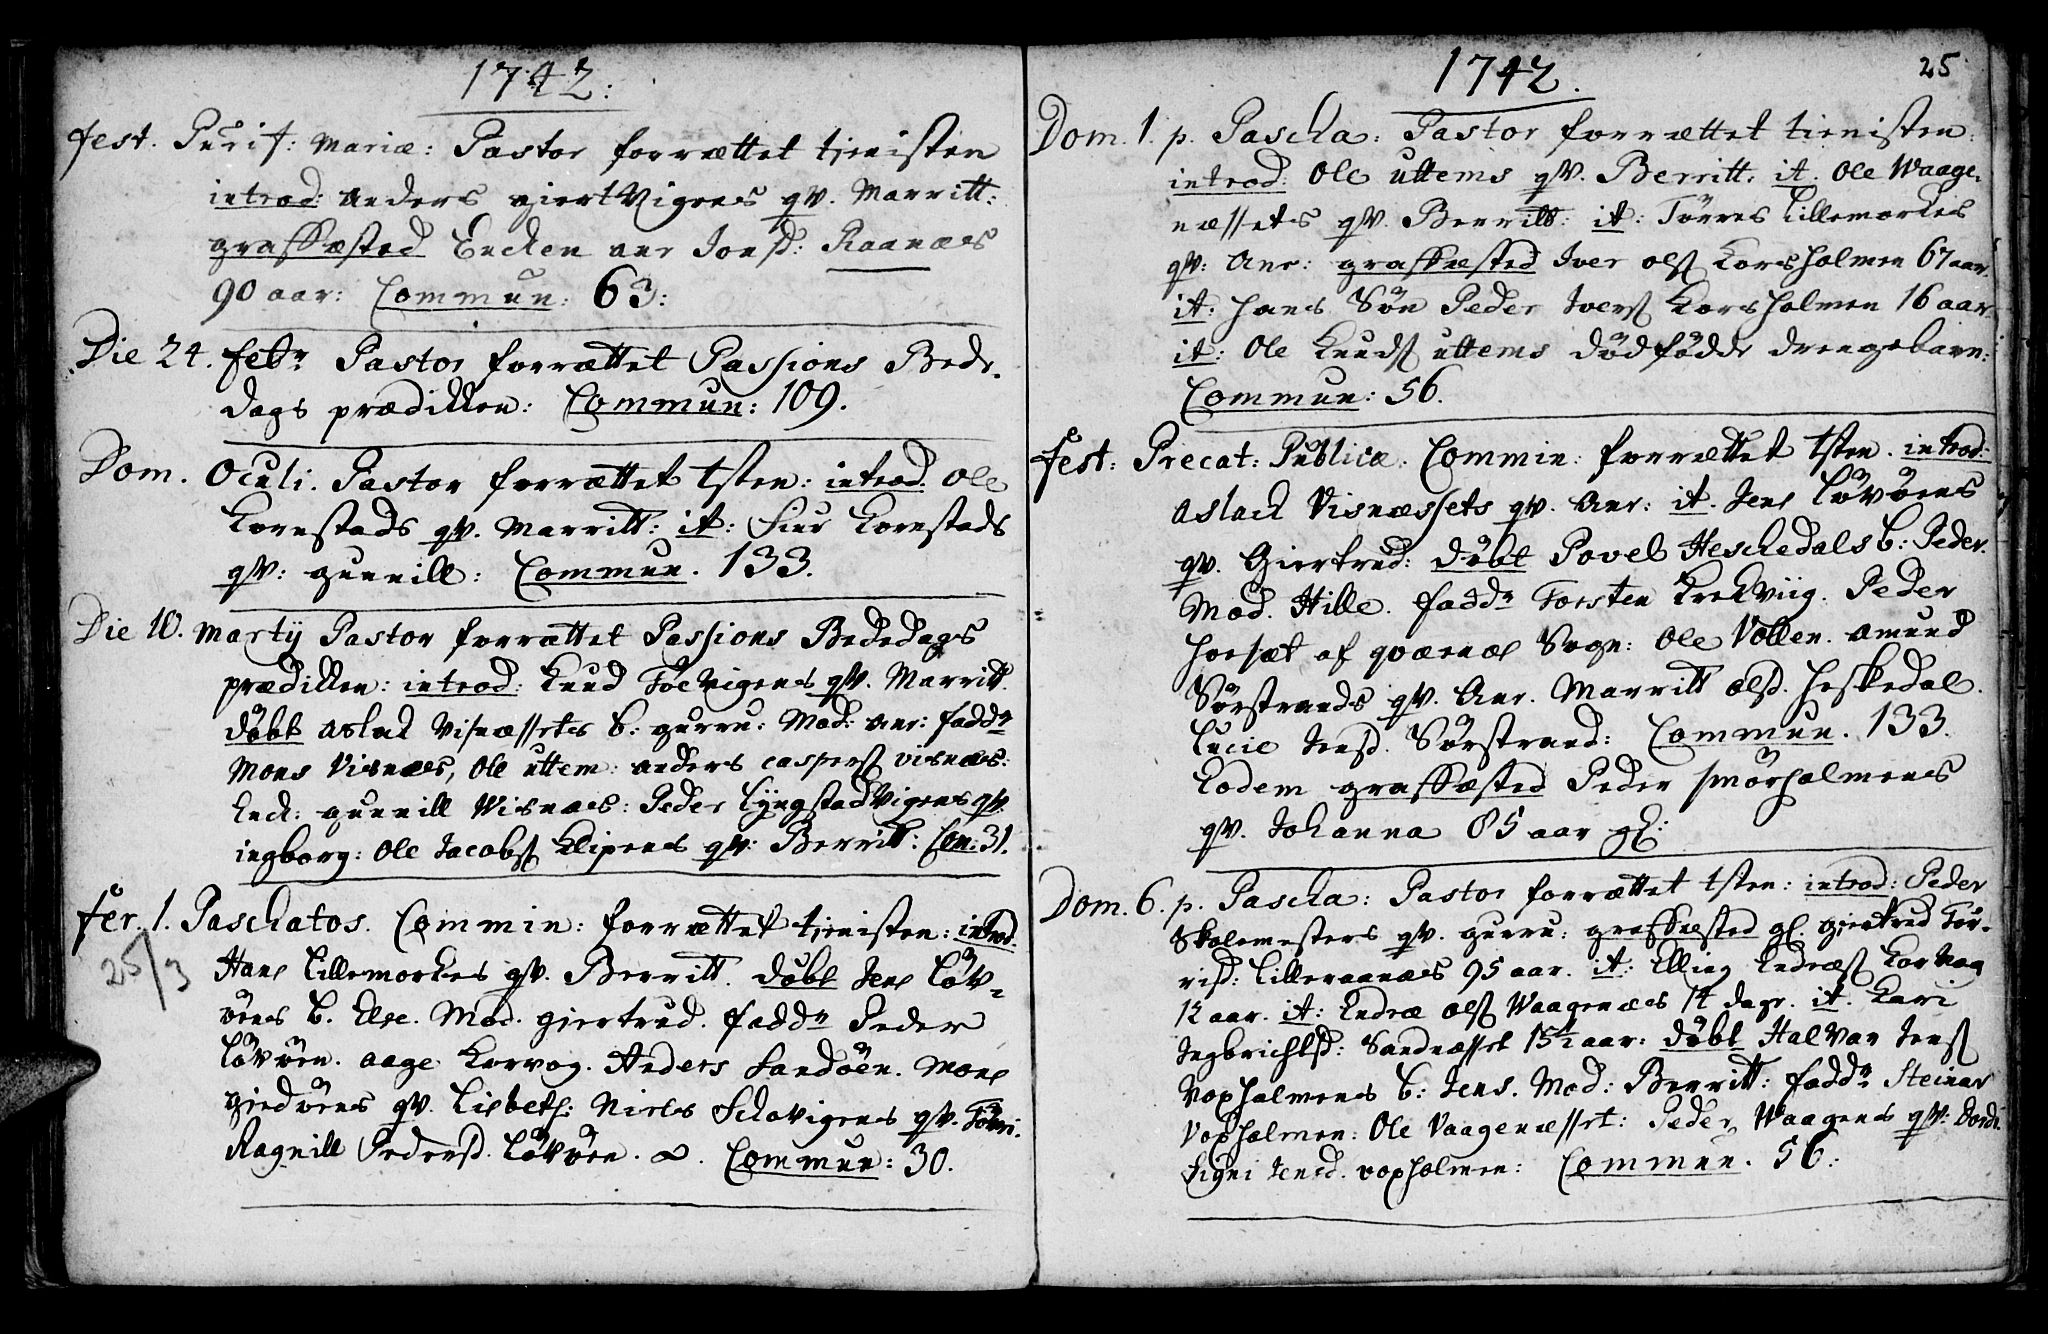 1742:
fest. Purif: Mariæ: Pastor forrættet tienisten
introd: Anders giertVigens qv. Marritt:
graffæsted Encken anr Jonsd: Raanæs
90 aar: Commun: 63:
Die 24. febr Pastor forrættet Passions Bede-
dags prædikken: Commun: 109.
Dom. Oculi. Pastor forrættet tsten: introd. Ole
Kornstads qv. Marritt: it: Siur Kornstads
qv: gunnill: Commun. 133.
Die 10. Martij Pastor forrættet Passions Bededags
prædikken: introd: Knud Toevigens qv. Marritt.
döbt Aslak Visnæssetes b. gurru: Mod: anr: faddr
Mons Visnæs, Ole uttem: anders caspers visnæs:
Enck: gunnill Visnæs: Peder LÿngstadVigens qv.
ingborg: Ole Jacobs Klipens qv: Berritt: Com: 31.
fer. 1. Paschatos. Commin: forrættet tienisten: introd.
25/3
Hans Lillemorkes qv. Berritt. döbt Jens Löv-
öens b. Else. Mod. giertrud. faddr Peder
Lövöen. aage Korvog. Anders Sandöen. Mons
giedöens qv. Lisbeth: Niels Schavigens qv.
Ragnill Pedersd. Lövöen. Commun: 30.
1742.
25
Dom. 1. p. Pascha: Pastor forrættet tienisten.
introd: Ole uttems qv. Berritt: it. Ole Waage-
næssets qv. Berritt: it: Törres Lillemorkes
qv: Anr: graffæsted Iver ols Korsholmen 67 aar.
it: hans Sön Peder Ivers Korsholmen 16 aar
it: Ole Knuds uttems dödfödde drengebarn:
Commun: 56.
fest: Precat: Publicæ. Commin: forrættet tsten. introd:
Aslack Visnæssets qv. Anr: it. Jens Lövöens
qv. Giertrud: döbt Povel Heschedals b: Peder.
Mod. Hille. faddr Torsten Krekviig. Peder
horsæt af qværnes Sogn: Ole Vollen. Amund
Sörstrands qv. Anr. Marritt olsd. Heskedal.
Lucie Jensd. Sörstrand: Commun. 133.
Eodem graffæsted Peder smörholmens
qv. Johanna 85 aar gl:
Dom. 6. p. Pascha: Pastor forrættet tsten: introd: Peder
Skolemesters qv. gurru: graffæsted gl. giertrud Tör-
risd: Lilleraanæs 95 aar. it: Elling Endres Korvaag
12 aar. it: Endre ols Waagenæs 14 dagr. it. Kari
Ingbrichtsd: Sandnesset 15½ aar: döbt Halvar Jens
Voxholmens b: Jens. Mod: Berritt: faddr Steinar
Voxholmen: Ole Vaagenæsset: Peder Waagens qv: Dordi.
Signi Jensd. voxholmen: Commun. 56: